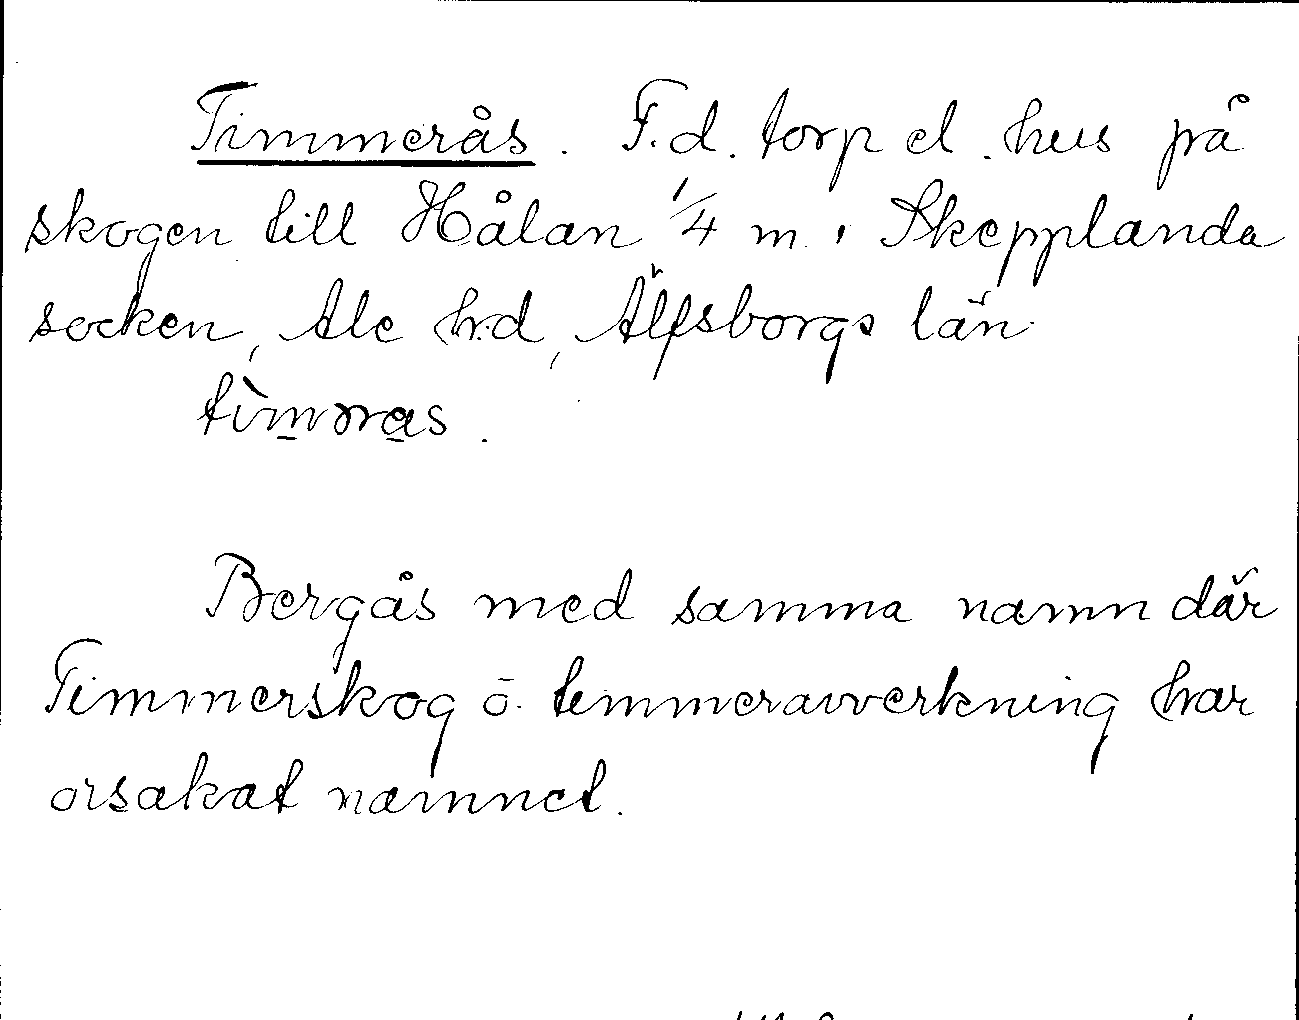 Timmerås. F.d. torp el. hus på
skogen till Hålan 1/4 m. i Skepplanda
socken, Ale hrd, Älfsborgs län.
Bergås med samma namn där
Timmerskog o. timmeravverkning har
orsakat namnet.